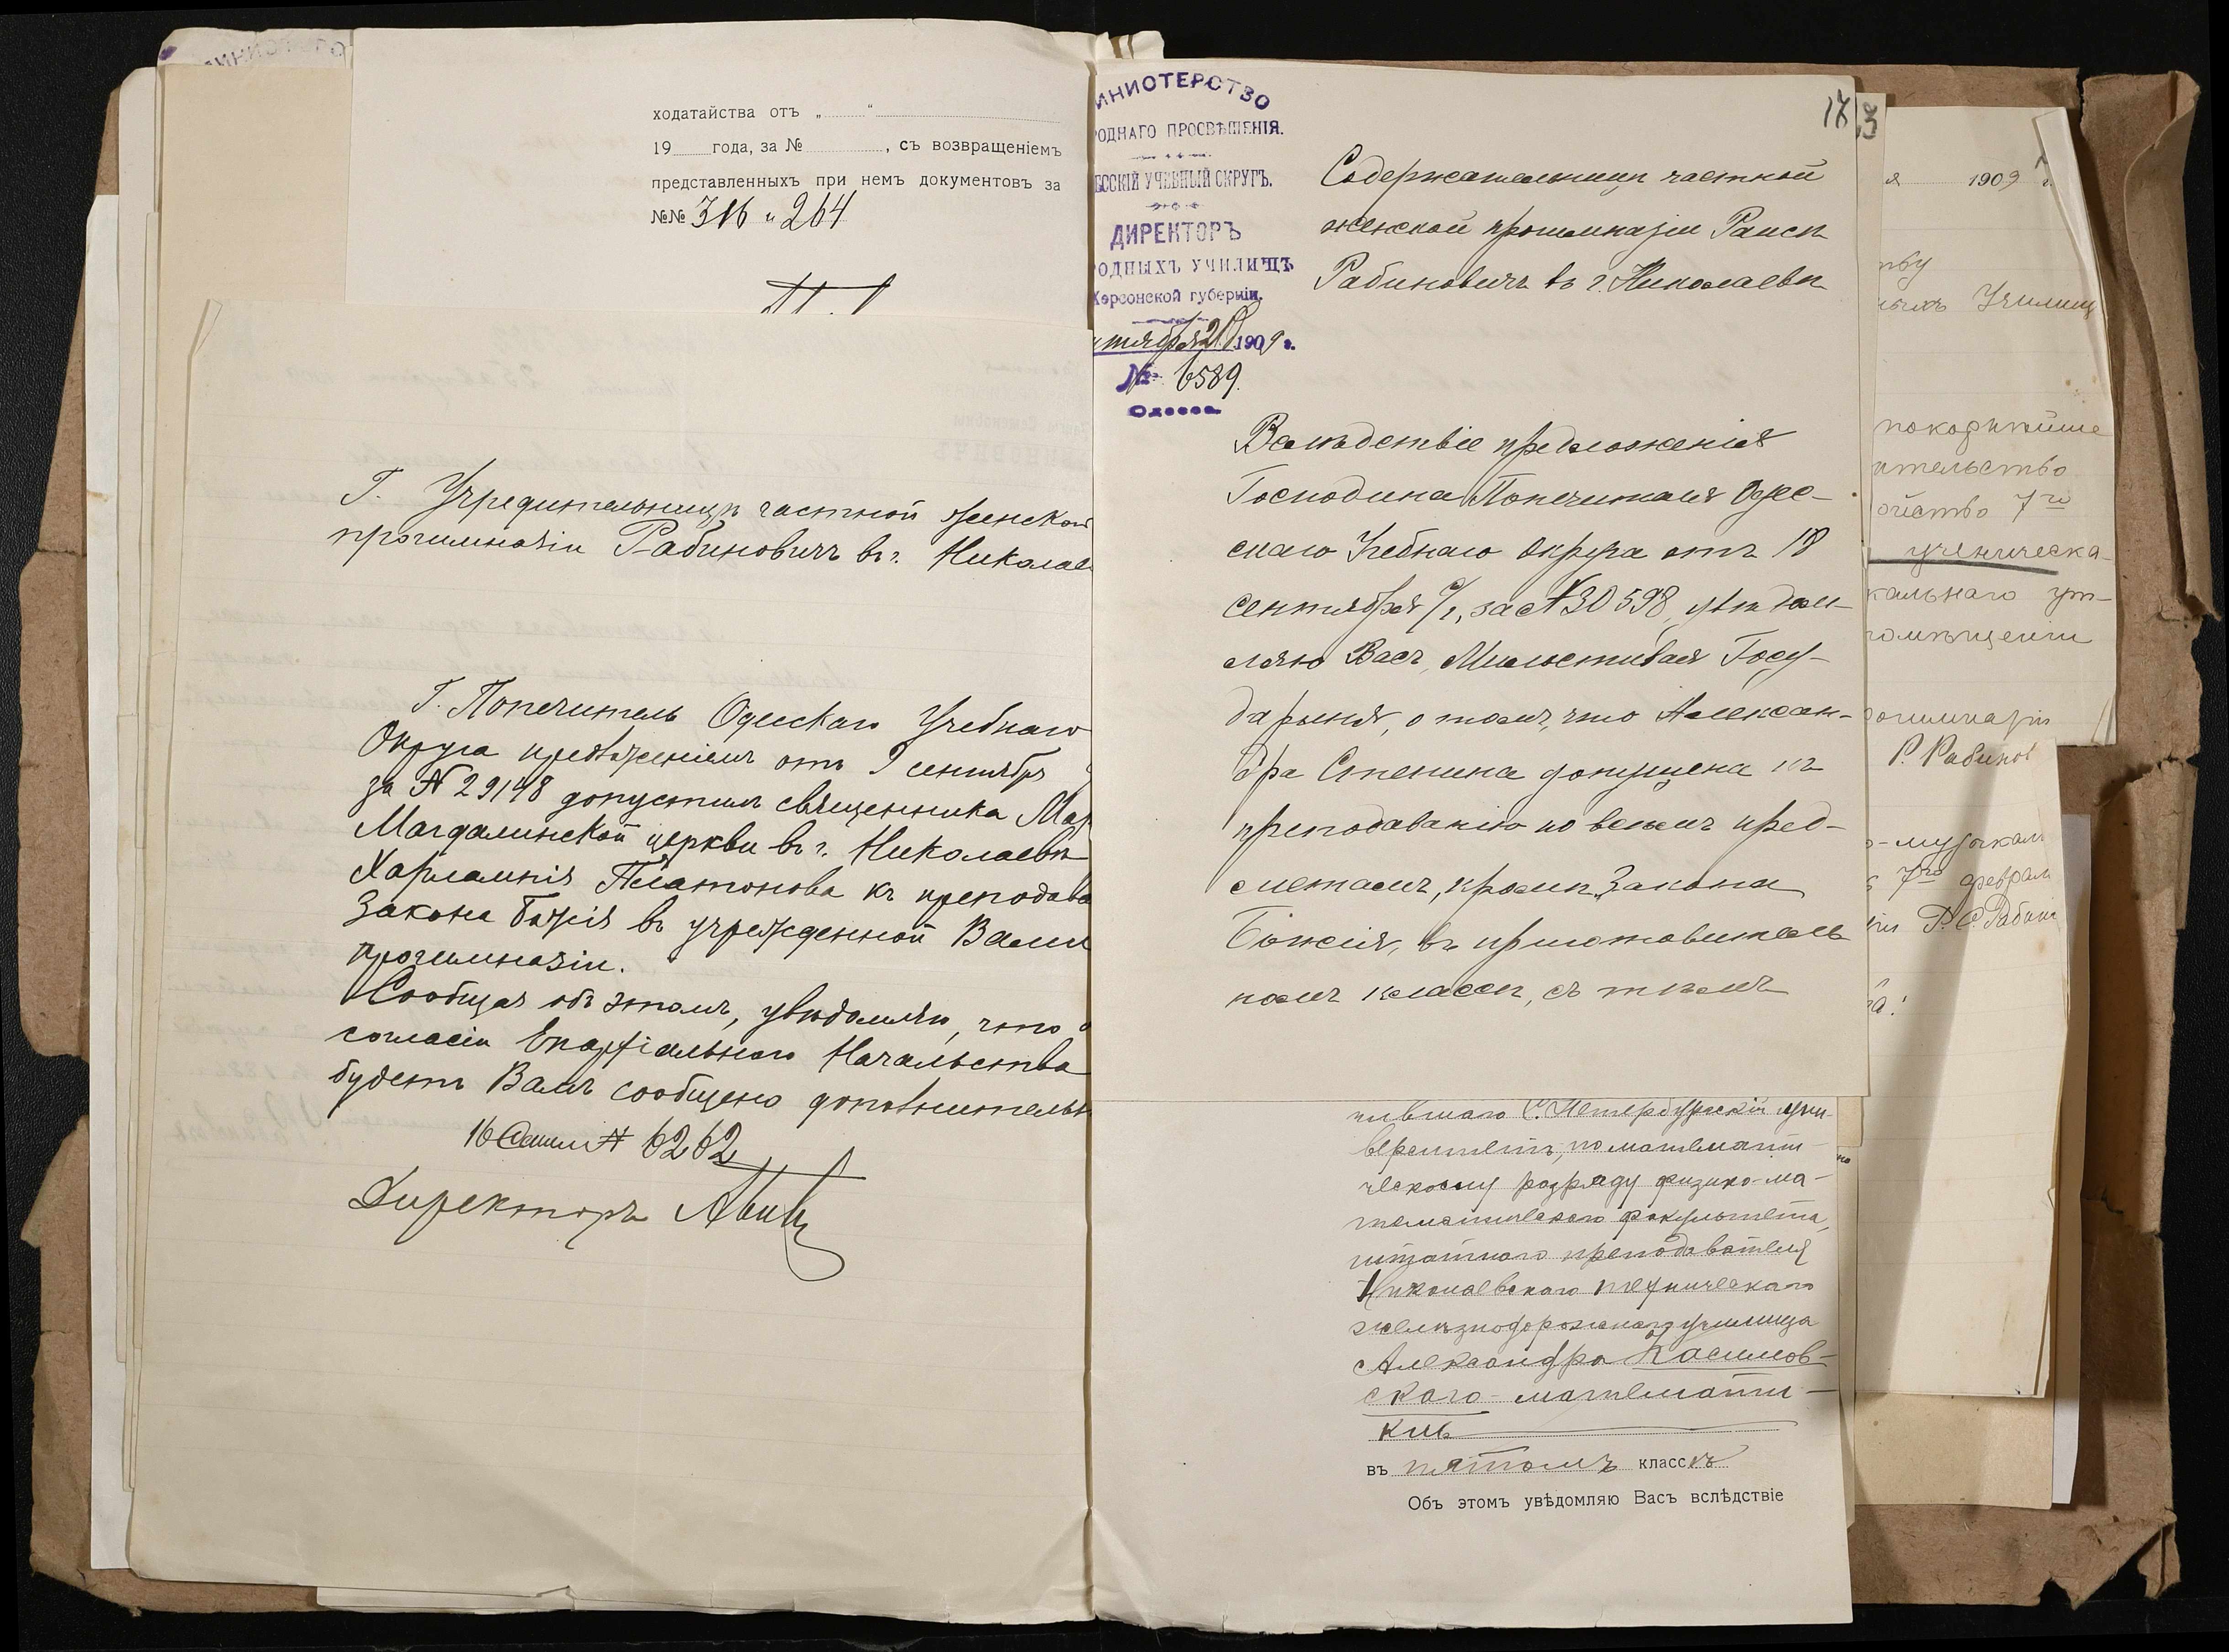 ходатайства отъ „ “
19 года, за № , съ возвращеніемъ
представленныхъ при немъ документовъ за
№№ 316 и 264
Г. Учредительницѣ частной женской
прогимназіи Рабиновичъ въ г. Николаев
Г. Попечитель Одесскаго Учебнаго
Округа предложеніемъ отъ 9 сентября
за № 29148 допустилъ священника Мар
Магдалинской церкви въ г. Николаевѣ
Харлампія Платонова къ преподава
Закона Божія въ учрежденной Вами
прогимназіи.
Сообщая объ этомъ, увѣдомляю, что о
согласіи Епархіальнаго Начальства
будетъ Вамъ сообщено дополнительн
16 Сент № 6262
Директоръ
ИНИСТЕРСТВО
РОДНАГО ПРОСВѢЩЕНІЯ.
ЕССКІЙ УЧЕБНЫЙ ОКРУГЪ.
ДИРЕКТОРЪ
РОДНЫХЪ УЧИЛИЩЪ
Херсонской губерніи.
нтября 20 1909 г.
№ 6589.
Одесса.
17
Содержательницѣ частной
женской прогимназіи Раисѣ
Рабиновичъ въ г. Николаевѣ
Вслѣдствіе предложенія
Господина Попечителя Одес-
скаго Учебнаго Округа отъ 18
сентября с/г, за № 30598, увѣдом-
ляю Васъ, Милостивая Госу-
дарыня, о томъ, что Алексан-
дра Стенина допущена къ
преподаванію по всѣмъ пред-
метамъ, кромѣ Закона
Божія, въ приготовитель
номъ классѣ, съ тѣмъ
чившаго С.Петербургскій уни-
верситетъ, по математи-
ческому разряду физико-ма-
тематическаго факультета,
штатнаго преподавателя
Николаевскаго техническаго
желѣзнодорожнаго училища
Александра Касинов-
скаго - математи-
кѣ
въ пятомъ классѣ
Объ этомъ увѣдомляю Васъ вслѣдствіе
я 1909 г.
тву
ныхъ Училищ
покорнѣйше
ательство
ойство 7го
ученическа-
кальнаго ут-
помѣщеніи
рогимназіи
Р. Рабинов
о-музыкал
7го феврал
Р. С. Рабин